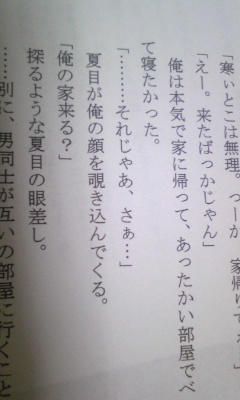 「寒いとこは無理。つーか、家帰りてぇ」
「えー。来たばっかじゃん」
俺は本気で家に帰って、あったかい部屋でべ
て寝たかった。
「………それじゃあ、さぁ…」
夏目が俺の顔を覗き込んでくる。
「俺の家来る？」
探るような夏目の眼差し。
……別に、男同士が互いの部屋に行くこと